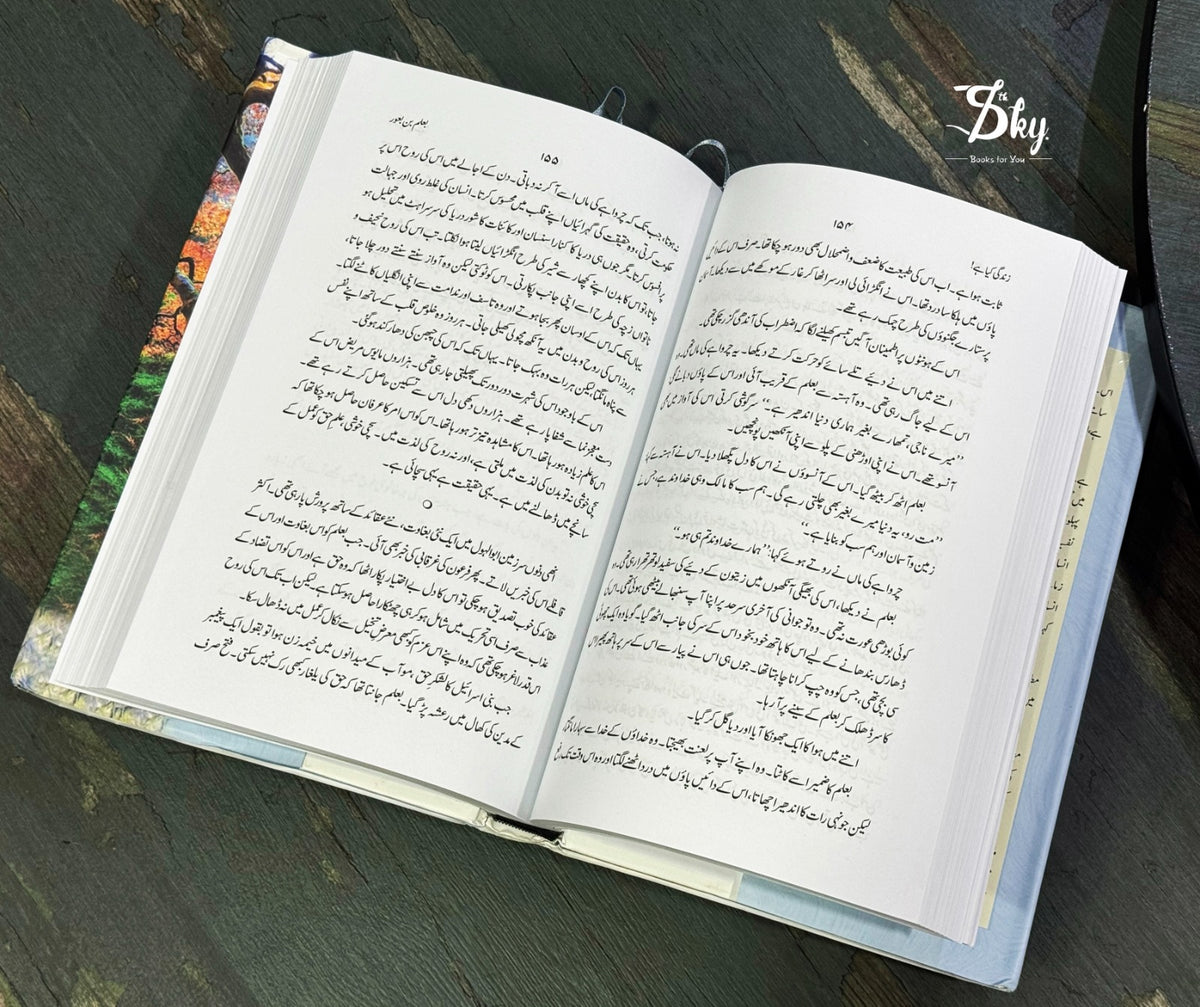 ۱۵۴
زندگی کیا ہے!
ثابت ہوا ہے۔ اب اس کی طبیعت کا ضعف و اضمحلال بھی دور ہو چکا تھا۔ صرف اس کے دائیں
پاؤں میں ہلکا سا درد تھا۔ اس نے انگڑائی لی اور سر اٹھا کر غار کے موکھے میں سے دیکھا۔
پر ستارے جگنوؤں کی طرح چمک رہے تھے۔
اس کے ہونٹوں پر اطمینان آگیں تبسم کھیلنے لگا کہ اضطراب کی آندھی گزر چکی تھی۔
اتنے میں اس نے دیئے تلے سائے کو حرکت کرتے دیکھا۔ یہ چرواہے کی ماں تھی۔
اس کے لیے جاگ رہی تھی۔ وہ آہستہ سے بلعم کے قریب آئی اور اس کے پاؤں دبانے لگی
”میرے ناجی، تمھارے بغیر ہماری دنیا اندھیر ہے“ سرگوشی کرتی اس کی آواز میں
آنسو تھے۔ اس نے اپنی اوڑھنی کے پلو سے اپنی آنکھیں پونچھیں۔
بلعم اٹھ کر بیٹھ گیا۔ اس کے آنسوؤں نے اس کا دل پگھلا دیا۔ اس نے آہستہ سے کہا
”مت رو، یہ دنیا میرے بغیر بھی چلتی رہے گی۔ ہم سب کا مالک وہی خداوند ہے، جس نے
زمین و آسمان اور ہم سب کو بنایا ہے۔“
چرواہے کی ماں نے روتے ہوئے کہا: ”ہمارے خداوند تم ہی ہو۔“
بلعم نے دیکھا، اس کی بھیگی آنکھوں میں زیتون کے دیئے کی سفید لو تھرتھرا رہی تھی۔ وہ
کوئی بوڑھی عورت نہ تھی۔ وہ نوجوانی کی آخری سرحد پر اپنا آپ سنبھالے بیٹھی ہوئی تھی۔ اس کی
ڈھارس بندھانے کے لیے اس کا ہاتھ خود بخود اس کے سر کی جانب اٹھ گیا۔ گویا وہ ایک چھوٹی
سی بچی تھی، جس کو وہ چپ کرانا چاہتا تھا۔ جوں ہی اس نے پیار سے اس کے سر پر ہاتھ پھیرا
کا سر ڈھلک کر بلعم کے سینے پر آ رہا۔
اتنے میں ہوا کا ایک جھونکا آیا اور دیا گل کر گیا۔
بلعم کا ضمیر اسے کاٹتا۔ وہ اپنے آپ پر لعنت بھیجتا۔ وہ خداؤں کے خدا سے سہارا مانگتا
لیکن جونہی رات کا اندھیرا چھاتا، اس کے دائیں پاؤں میں درد اٹھنے لگتا اور وہ اس وقت تک
۱۵۵
بلعم بن بعور
نہ ہوتا، جب تک کہ چرواہے کی ماں اسے آ کر نہ دباتی۔ دن کے اجالے میں اس کی روح اس پر
حکومت کرتی، وہ حقیقت کی گہرائیاں اپنے قلب میں محسوس کرتا۔ انسان کی غلط روی اور جہالت
پر افسوس کرتا۔ مگر جوں ہی دریا کا کنارا سنسان اور کائنات کا شور دریا کی سرسراہٹ میں تحلیل ہو
جاتا، تو اس کا بدن اپنے کچھار سے شیر کی طرح انگڑائیاں لیتا ہوا نکلتا۔ تب اس کی روح نحیف و
ناتواں زچہ کی طرح اسے اپنی جانب پکارتی۔ اس کو ٹوکتی لیکن وہ آواز سنتے سنتے دور چلا جاتا،
یہاں تک کہ اس کے اوسان پھر بجا ہوتے اور وہ تاسف اور ندامت سے اپنی انگلیاں کاٹنے لگتا۔
ہر روز اس کی روح و بدن میں یہ آنکھ مچولی کھیلی جاتی۔ ہر روز وہ خلوص قلب کے ساتھ اپنے نفس
سے پناہ مانگتا، لیکن ہر رات وہ بہک جاتا۔ یہاں تک کہ اس کی چبھن کی دھار کند ہو گئی۔
اس کے باوجود اس کی شہرت دور دور تک پھیلتی جا رہی تھی۔ ہزاروں مایوس مریض اس کے
دست معجز نما سے شفا پا رہے تھے۔ ہزاروں دکھی دل اس سے تسکین حاصل کرتے رہے تھے۔
اس کا علم زیادہ ہو رہا تھا۔ اس کا مشاہدہ تیز تر ہو رہا تھا۔ اس کو اس امر کا عرفان حاصل ہو چکا تھا کہ
سچی خوشی نہ تو بدن کی لذت میں ملتی ہے، اور نہ روح کی لذت میں۔ سچی خوشی، علم حق کو عمل کے
سانچے میں ڈھالنے میں ہے۔ یہی حقیقت ہے یہی سچائی ہے۔
انھی دنوں سرزمین ابوالہول میں ایک نئی بغاوت، نئے عقائد کے ساتھ پرورش پا رہی تھی۔ اکثر
قافلے اس کی خبریں لاتے۔ پھر فرعون کی غرقابی کی خبر بھی آئی۔ جب بلعم کو اس بغاوت اور اس کے
عقائد کی خوب تصدیق ہو چکی تو اس کا دل بے اختیار پکار اٹھا کہ وہ حق ہے اور اس کو اس تضاد کے
عذاب سے صرف اسی تحریک میں شامل ہو کر ہی چھٹکارا حاصل ہو سکتا ہے۔ لیکن اب تک اس کی روح
اس قدر لاغر ہو چکی تھی کہ وہ اپنے اس عزم کو بھی معرض تخیل سے نکال کر عمل میں نہ ڈھال سکا۔
جب بنی اسرائیل کا لشکر حق، موآب کے میدانوں میں خیمہ زن ہوا تو بقول ایک پیغمبر
کے مدین کی کھال میں رعشہ پڑ گیا۔ بلعم جانتا تھا کہ حق کی یلغار کبھی رک نہیں سکتی۔ فتح صرف
7th Sky
Books for You